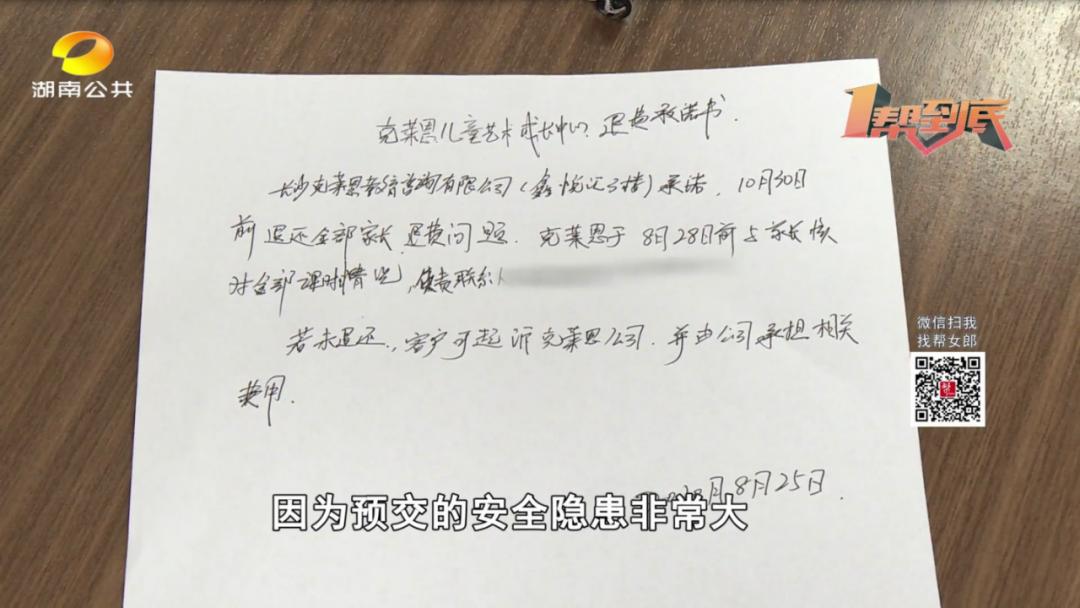 湖南公共
1帮到底
克莱恩儿童艺术成长中心退费承诺书.
长沙克莱恩教育咨询有限公司(鑫悦汇3楼)承诺,10月30日
前退还全部家长退费问题.克莱恩于8月28日前与家长核
对全部课时情况,负责联系人
若未退还.,客户可起诉克莱恩公司.并由公司承担相关
费用.
微信扫我
找帮女郎
月8月25日.
因为预交的安全隐患非常大